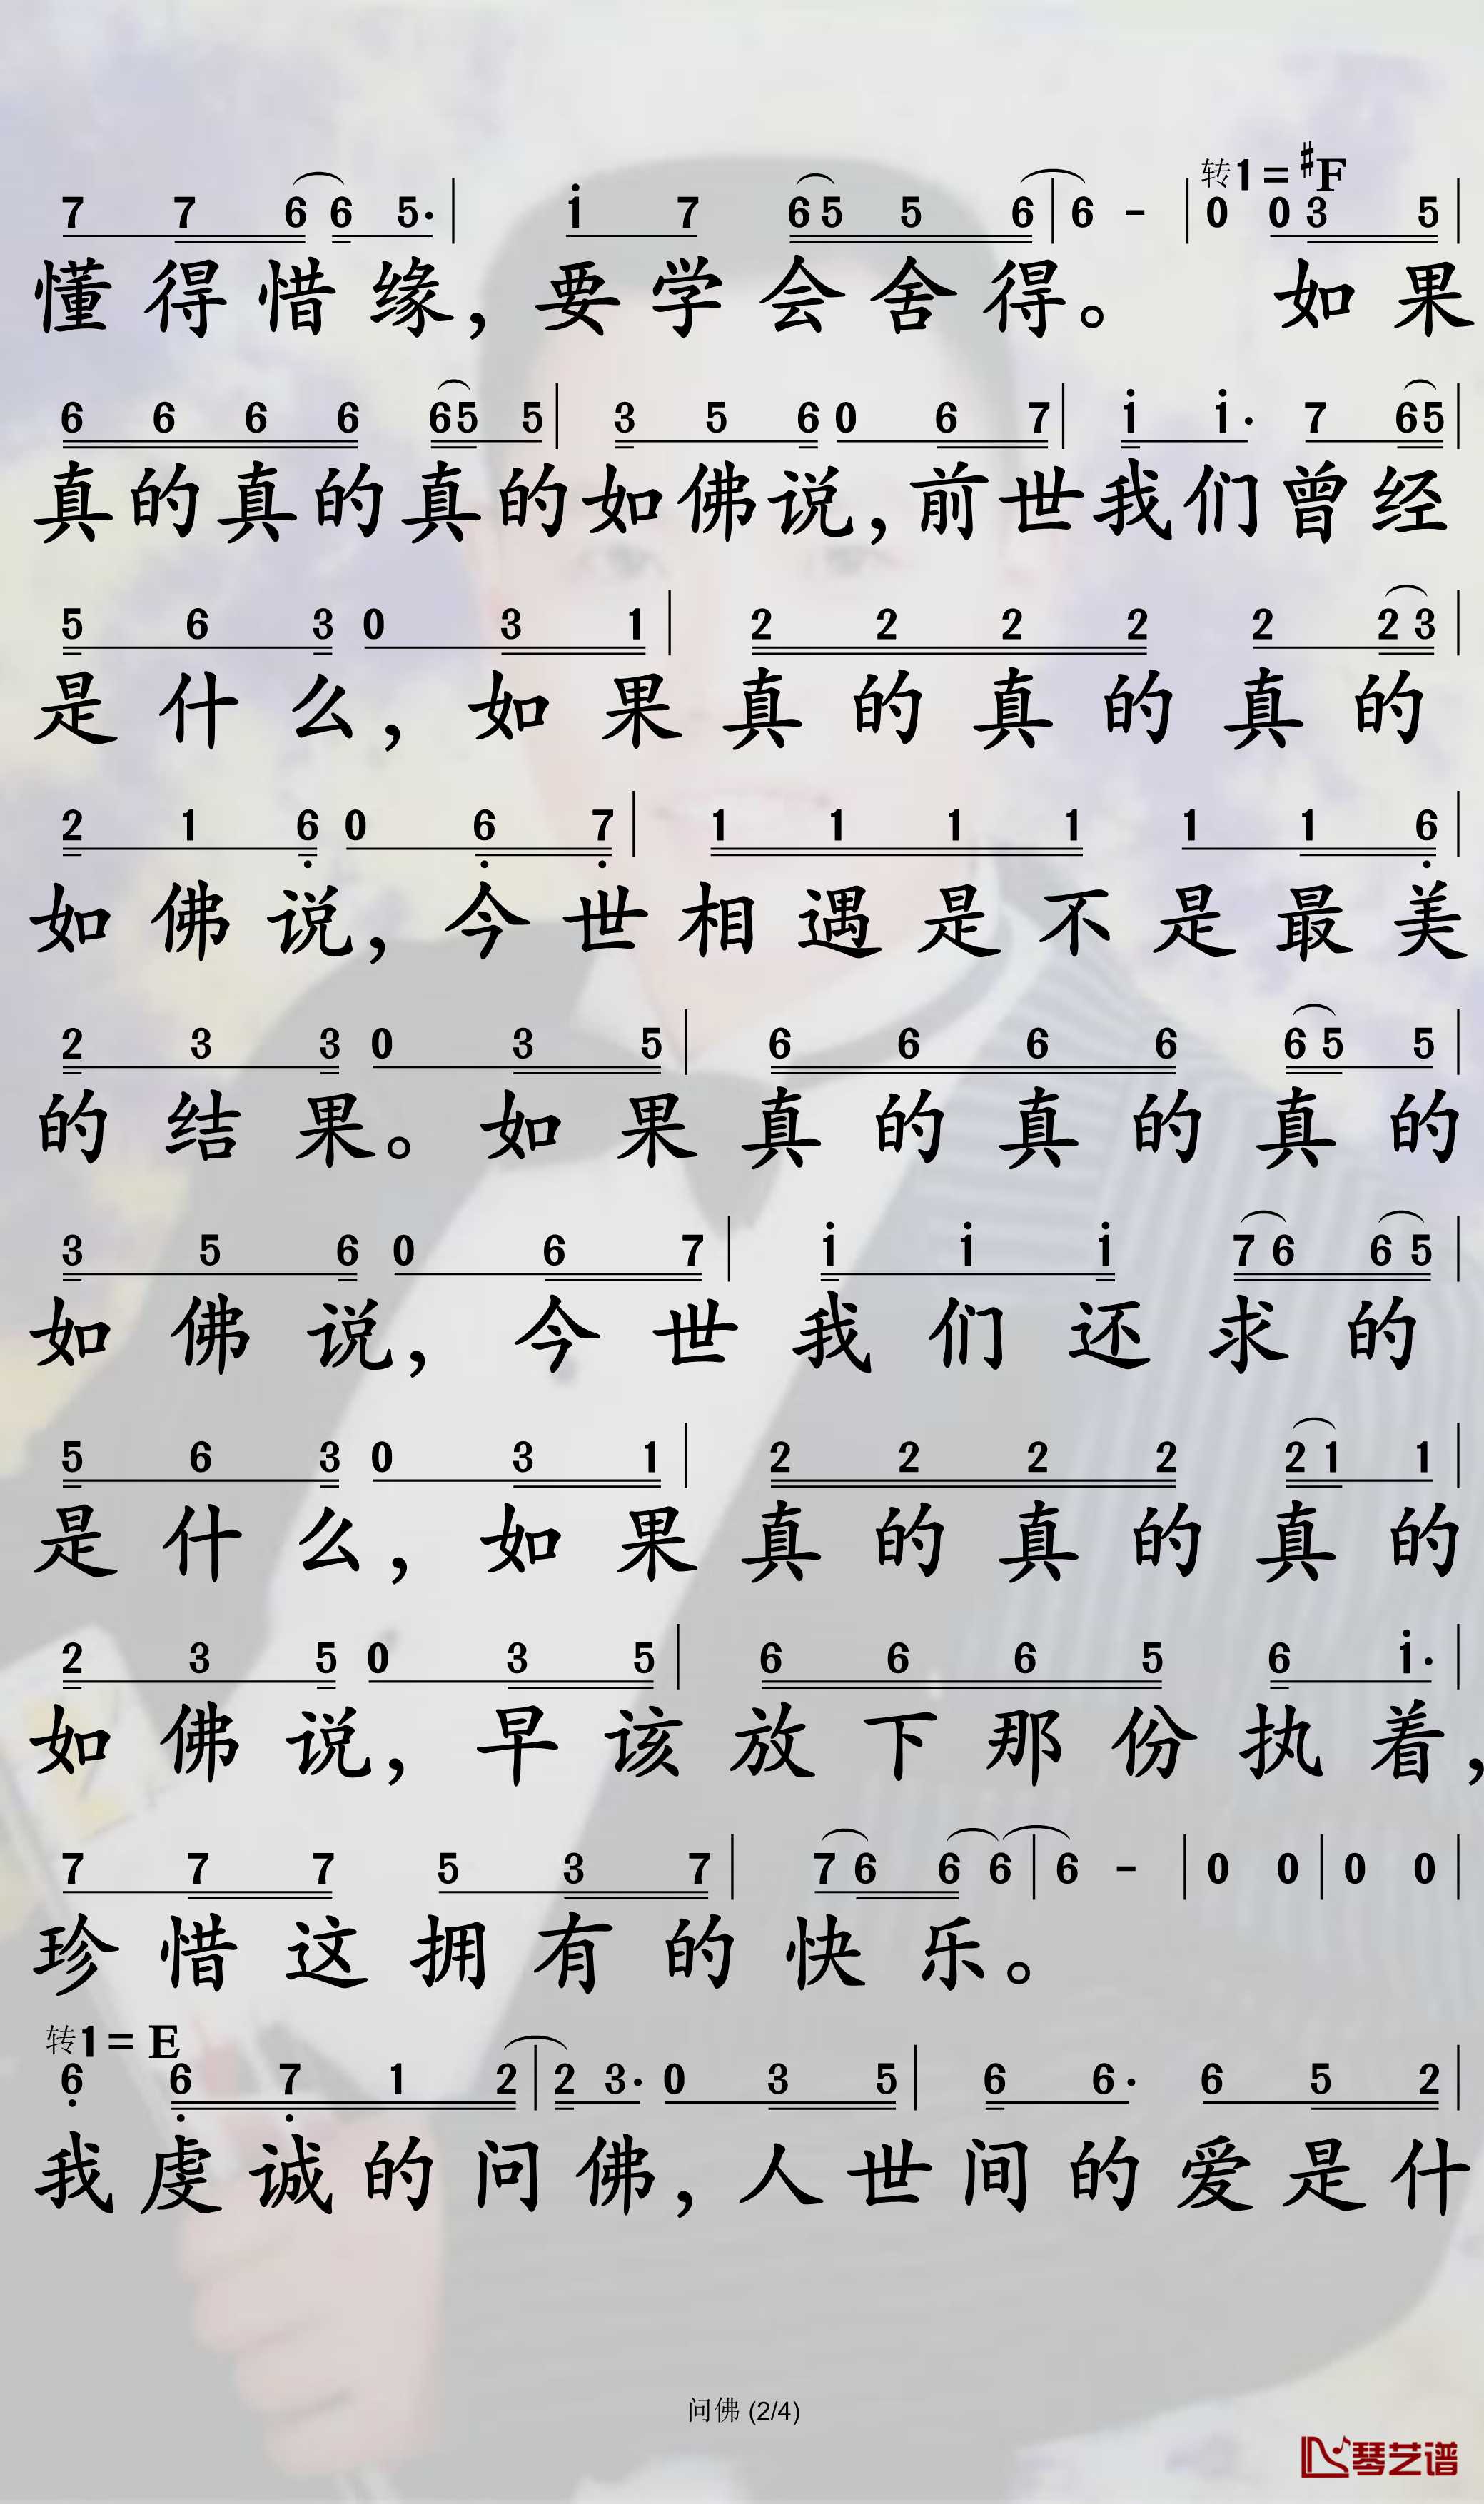 转1=♯F
7 7 6 6 5· | i 7 6 5 5 6 | 6 - | 0 0 3 5 |
懂得惜缘，要学会舍得。 如果
6 6 6 6 6 5 5 | 3 5 6 0 6 7 | i i· 7 6 5 |
真的真的真的如佛说，前世我们曾经
5 6 3 0 3 1 | 2 2 2 2 2 2 3 |
是什么，如果真的真的真的
2 1 6̣ 0 6̣ 7̣ | 1 1 1 1 1 1 6̣ |
如佛说，今世相遇是不是最美
2 3 3 0 3 5 | 6 6 6 6 6 5 5 |
的结果。如果真的真的真的
3 5 6 0 6 7 | i i i 7 6 6 5 |
如佛说，今世我们还求的
5 6 3 0 3 1 | 2 2 2 2 2 1 1 |
是什么，如果真的真的真的
2 3 5 0 3 5 | 6 6 6 5 6 i· |
如佛说，早该放下那份执着，
7 7 7 5 3 7 | 7 6 6 6 | 6 - | 0 0 | 0 0 |
珍惜这拥有的快乐。
转1=E
6̣ 6̣ 7̣ 1 2 | 2 3· 0 3 5 | 6 6· 6 5 2 |
我虔诚的问佛，人世间的爱是什
问佛 (2/4)
琴艺谱